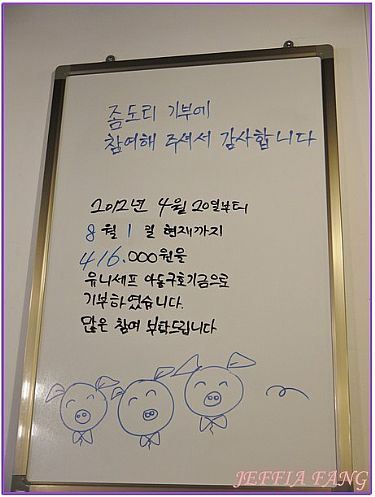 좀도리 기부에
참여해 주셔서 감사합니다
2012년 4월 20일부터
8월 1일 현재까지
416.000원을
유니세프 아동구호기금으로
기부하였습니다.
많은 참여 부탁드립니다
JEFFIA FANG